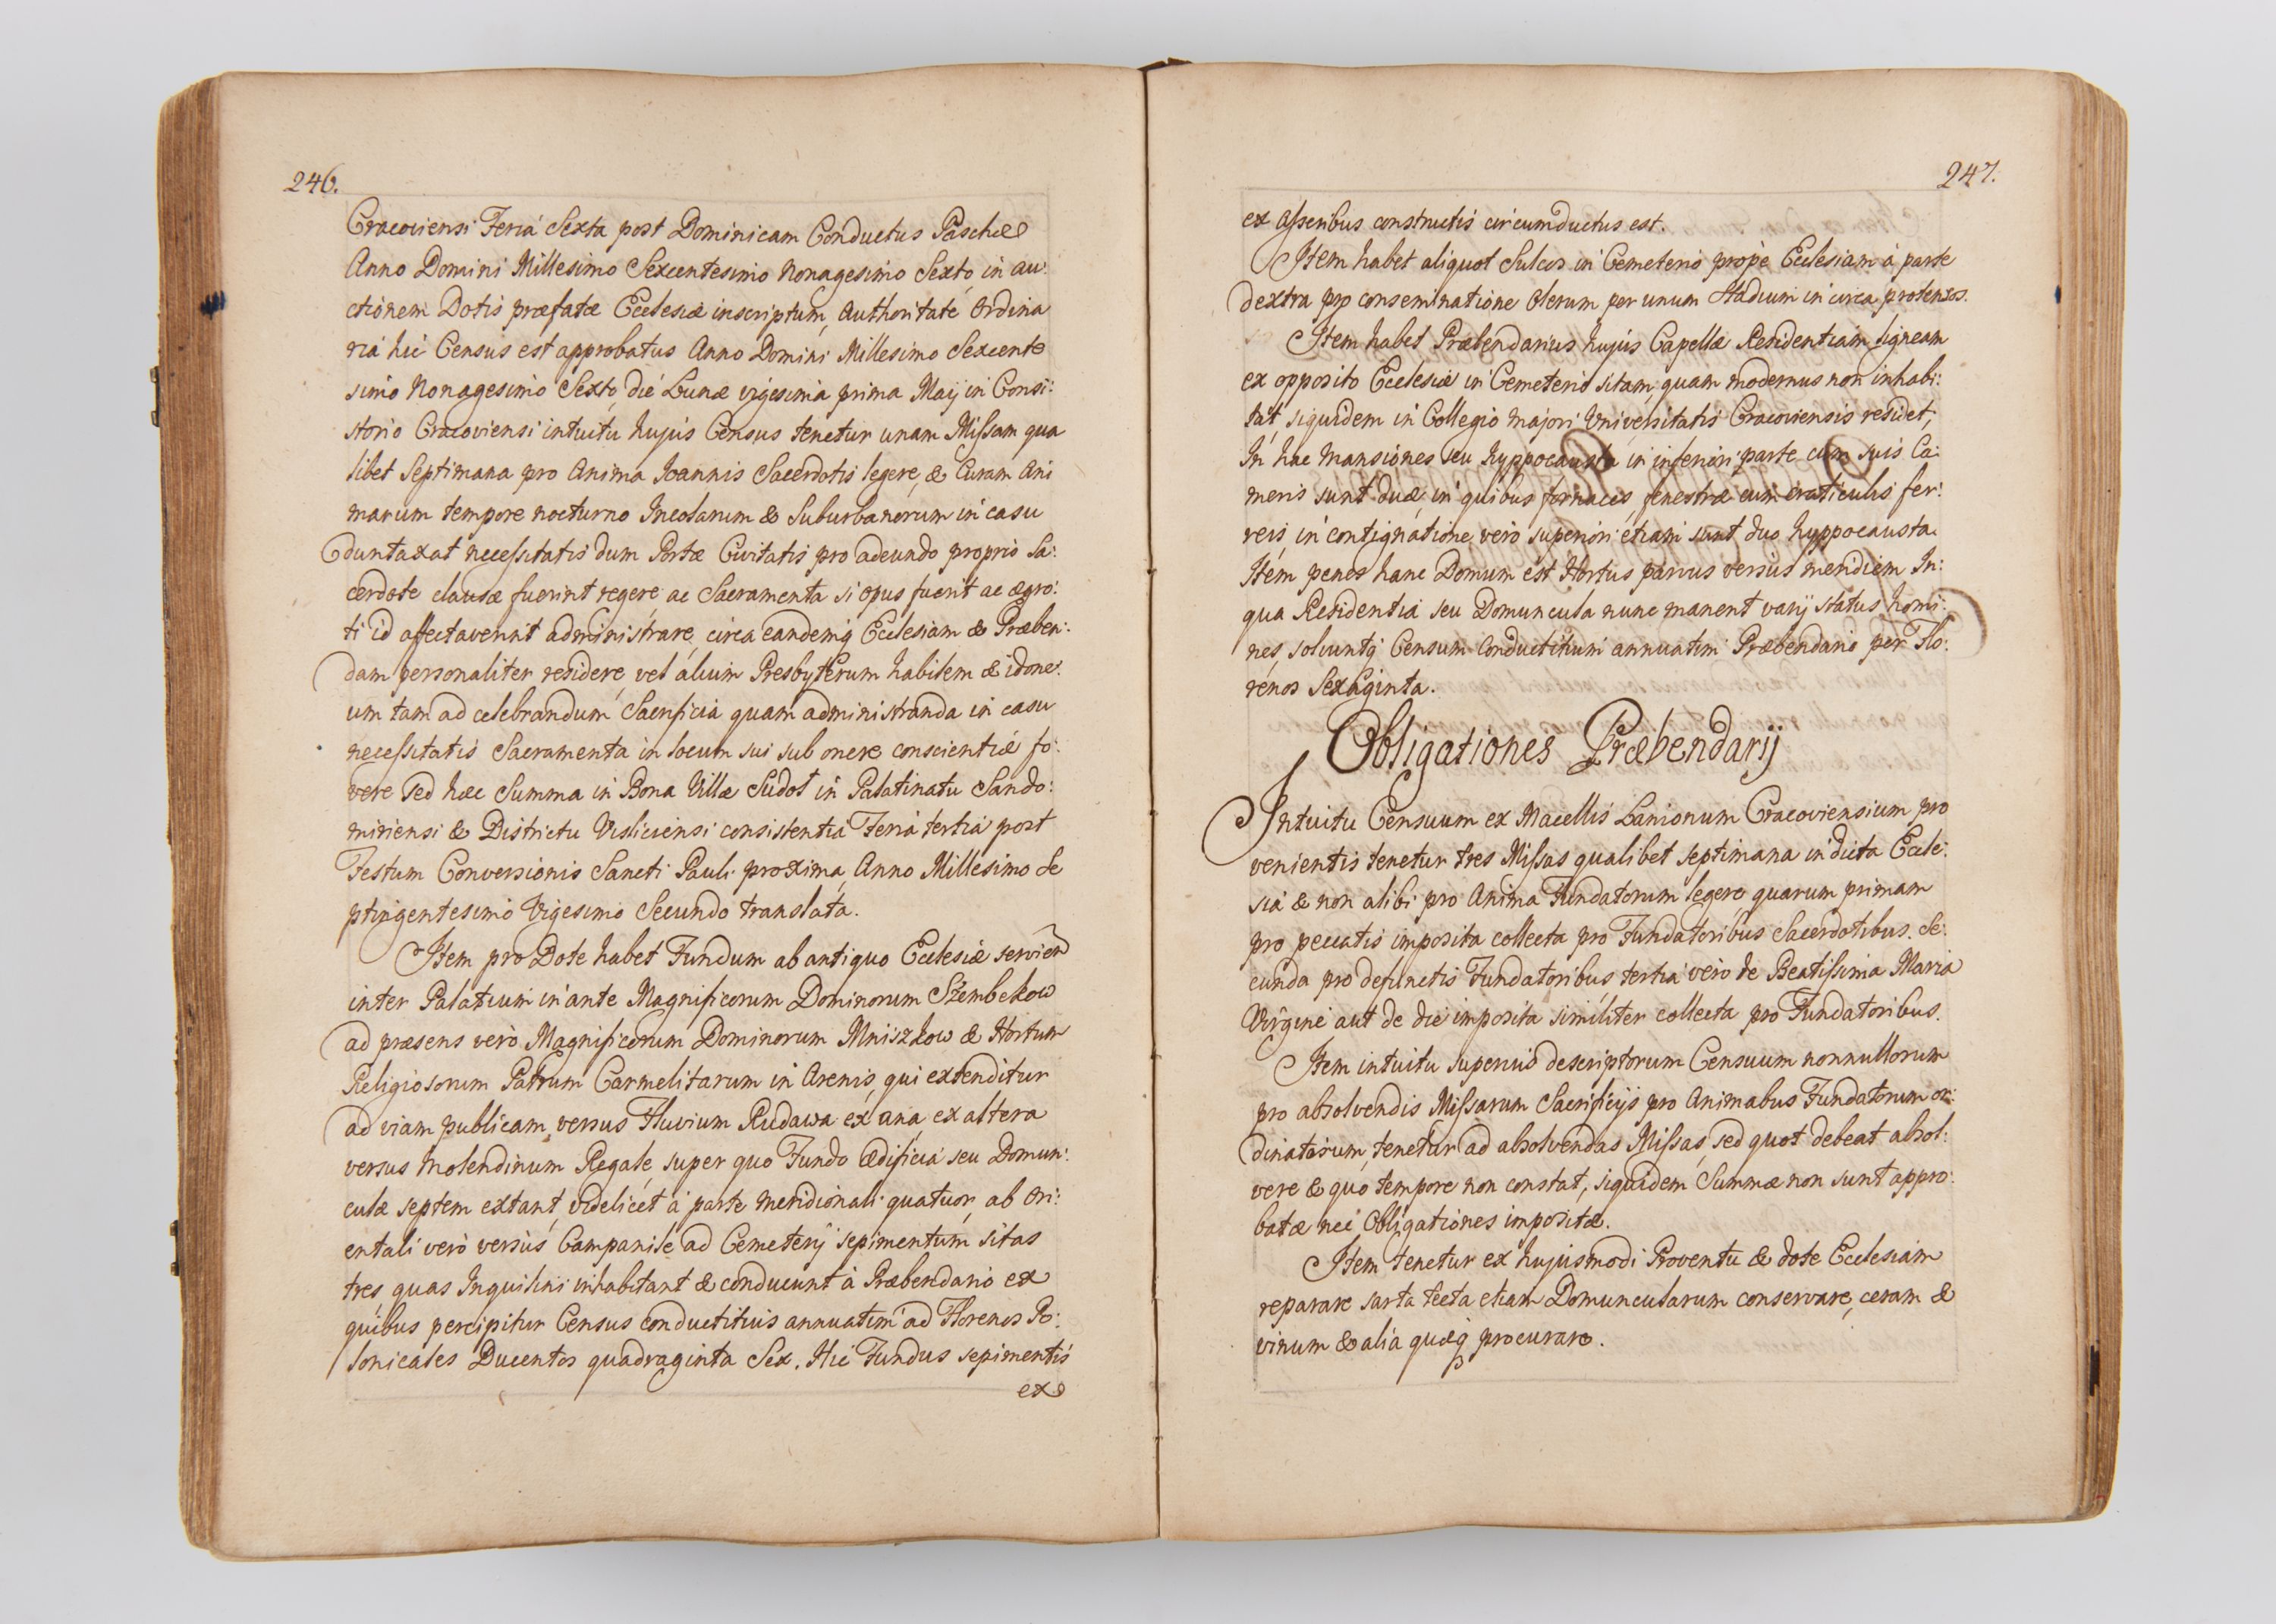 246.
Cracoviensi Feria Sexta post Dominicam Conductus Paschæ
Anno Domini Millesimo Sexcentesimo Nonagesimo Sexto, in au:
ctionem Dotis præfatæ Ecclesiæ inscriptum, Authoritate Ordina
ria hic Census est approbatus Anno Domini Millesimo Sexcente
simo Nonagesimo Sexto, die Lunæ vigesima prima Maij in Consi:
storio Cracoviensi intuitu hujus Census tenetur unam Missam qua
libet Septimana pro Anima Joannis Sacerdotis legere, & Curam Ani
marum tempore nocturno Incolarum & Suburbanorum in casu
duntaxat necessitatis dum Portæ Civitatis pro adeundo proprio Sa:
cerdote clausæ fuerint regere, ac Sacramenta si opus fuerit ac ægro:
ti id affectaverint administrare, circa eandemq Ecclesiam & Præben:
dam personaliter residere, vel alium Presbyterum habilem & idone:
um tam ad celebrandum Sacrificia quam administranda in casu
necessitatis Sacramenta in locum sui sub onere conscientiæ fo:
vere sed hæc Summa in Bona Villæ Sudoł in Palatinatu Sando:
miriensi & Districtu Visliciensi consistentia Feria tertia post
Festum Conversionis Sancti Pauli proxima, Anno Millesimo Se
ptingentesimo Vigesimo Secundo translata.
Item pro Dote habet Fundum ab antiquo Ecclesiæ servien
inter Palatium in ante Magnificorum Dominorum Szembekow
ad præsens vero Magnificorum Dominorum Mniszkow & Hortum
Religiosorum Patrum Carmelitarum in Arenis, qui extenditur
ad viam publicam versus Fluvium Rudawa ex una ex altera
versus Molendinum Regale, super quo Fundo ædificia seu Domun:
culæ septem extant, videlicet a parte meridionali quatuor, ab Ori:
entali vero versus Campanile ad Cemeterij sepimentum sitas
tres, quas Inquilini inhabitant & conducunt à Præbendario ex
quibus percipitur Census conductitius annuatim ad Florenos Po:
lonicales Ducentos quadraginta Sex. Hic Fundus sepimentis
ex
247.
ex asseribus constructis circumductus est.
Item habet aliquot Sulcos in Cemeterio propè Ecclesiam à parte
dextra pro conseminatione Olerum per unum Stadium in circa protensos.
Item habet Præbendarius hujus Capellæ Residentiam ligneam
ex opposito Ecclesiæ in Cemeterio sitam, quam modernus non inhabi:
tat, siquidem in Collegio Majori Universitatis Cracoviensis residet,
In hac Mansiones seu hyppocausta in inferiori parte cum suis Ca:
meris sunt duæ, in quibus fornaces, fenestræ cum craticulis fer:
reis, in contignatione vero superiori etiam sunt duo hyppocausta.
Item penes hanc Domum est Hortus parvus versus meridiem In:
qua Residentia seu Domuncula nunc manent varij status homi:
nes, solvuntq Censum Conductitium annuatim Præbendario per Flo:
renos Sexaginta.
Obligationes Præbendarij
Intuitu Censuum ex Macellis Lanionum Cracoviensium pro
venientis tenetur tres Missas qualibet septimana in dicta Eccle:
sia & non alibi pro Anima Fundatorum legere, quarum primam
pro peccatis imposita collecta pro Fundatoribus Sacerdotibus. Se:
cunda pro defunctis Fundatoribus, tertia vero de Beatissima Maria
Virgine aut de die imposita similiter collecta pro Fundatoribus.
Item intuitu superius descriptorum Censuum nonnullorum
pro absolvendis Missarum Sacrificijs pro Animabus Fundatorum or:
dinatarum, tenetur ad absolvendas Missas, sed quot debeat absol:
vere & quo tempore non constat, siquidem Summæ non sunt appro:
batæ nec Obligationes impositæ.
Item tenetur ex hujusmodi Proventu & dote Ecclesiam
reparare sarta tecta etiam Domuncularum conservare, ceram &
vinum & alia quæq procurare.